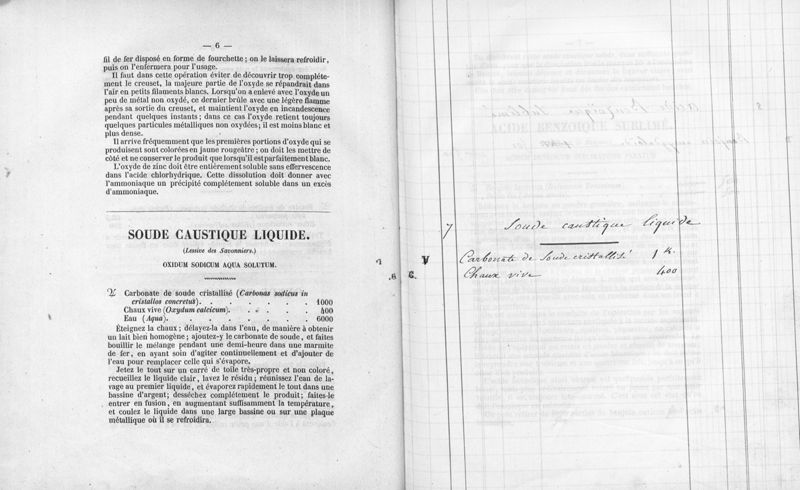 — 6 —
fil de fer disposé en forme de fourchette ; on le laissera refroidir,
puis on l'enfermera pour l'usage.
Il faut dans cette opération éviter de découvrir trop compléte-
ment le creuset, la majeure partie de l'oxyde se répandrait dans
l'air en petits filaments blancs. Lorsqu'on a enlevé avec l'oxyde un
peu de métal non oxydé, ce dernier brûle avec une légère flamme
après sa sortie du creuset, et maintient l'oxyde en incandescence
pendant quelques instants ; dans ce cas l'oxyde retient toujours
quelques particules métalliques non oxydées; il est moins blanc et
plus dense.
Il arrive fréquemment que les premières portions d'oxyde qui se
produisent sont colorées en jaune rougeâtre ; on doit les mettre de
côté et ne conserver le produit que lorsqu'il est parfaitement blanc.
L'oxyde de zinc doit être entièrement soluble sans effervescence
dans l'acide chlorhydrique. Cette dissolution doit donner avec
l'ammoniaque un précipité complétement soluble dans un excès
d'ammoniaque.
SOUDE CAUSTIQUE LIQUIDE.
(Lessive des Savonniers.)
OXIDUM SODICUM AQUA SOLUTUM.
♃ Carbonate de soude cristallisé (Carbonas sodicus in
cristallos concretus). . . . . . . . 1000
Chaux vive (Oxydum calcicum). . . . . 400
Eau (Aqua). . . . . . . . . . 6000
Éteignez la chaux ; délayez-la dans l'eau, de manière à obtenir
un lait bien homogène ; ajoutez-y le carbonate de soude, et faites
bouillir le mélange pendant une demi-heure dans une marmite
de fer, en ayant soin d'agiter continuellement et d'ajouter de
l'eau pour remplacer celle qui s'évapore.
Jetez le tout sur un carré de toile très-propre et non coloré,
recueillez le liquide clair, lavez le résidu ; réunissez l'eau de la-
vage au premier liquide, et évaporez rapidement le tout dans une
bassine d'argent; desséchez complétement le produit ; faites-le
entrer en fusion, en augmentant suffisamment la température,
et coulez le liquide dans une large bassine ou sur une plaque
métallique où il se refroidira.
7 Soude caustique liquide
V Carbonate de Soude cristallisé 1 k.
Chaux vive 400